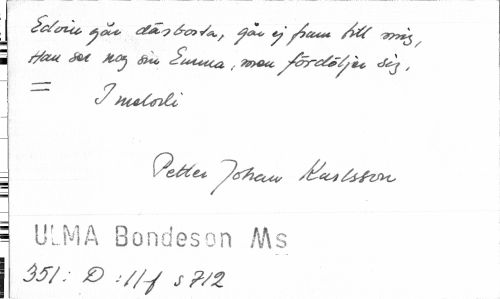 Edvin går därborta, går ej fram till mig,
Han ser nog sin Emma, men fördöljer sig.
= I melodi
Petter Johan Karlsson
ULMA Bondeson Ms
351: D :11f s 712